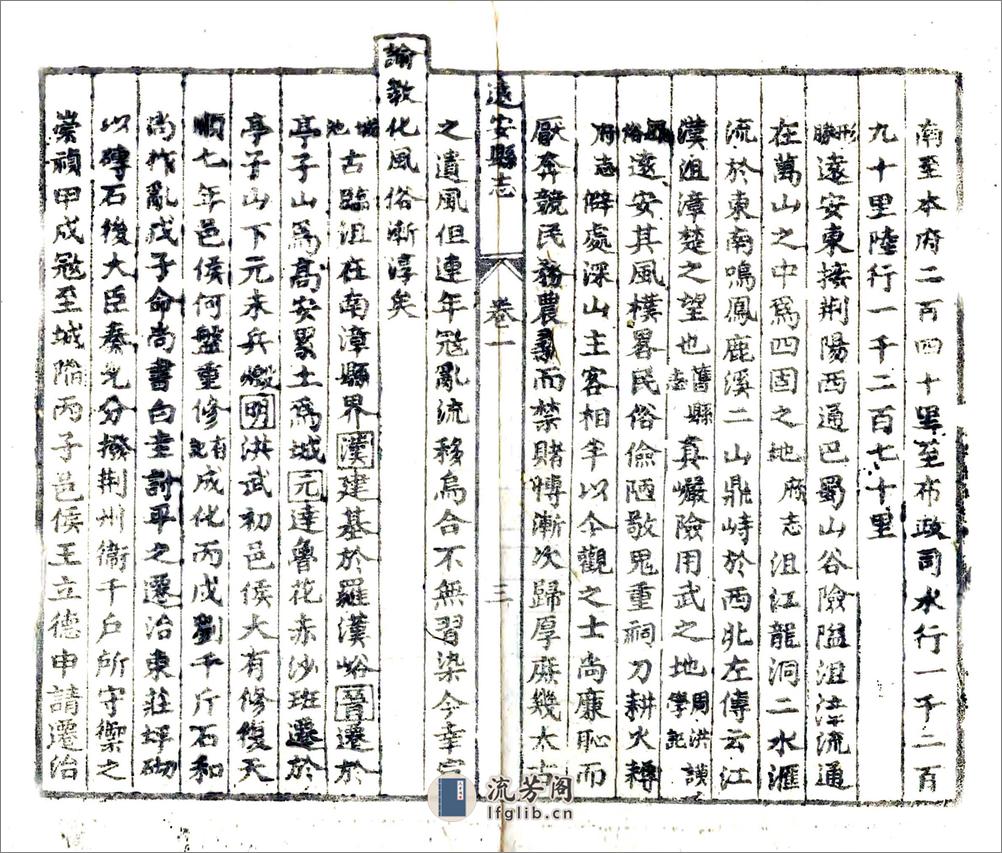 南至本府二百四十里至布政司水行一千二百
九十里陸行一千二百七十里
形勝遠安東接荆陽西通巴蜀山谷險隘沮流通
在萬山之中爲四固之地府志沮江龍洞二水滙
流於東南鳴鳳鹿溪二山鼎峙於西北左傳云江
漢沮漳楚之望也舊縣志真巖險用武之地周洪謨學記
風俗遠安其風樸畧民俗儉陋敬鬼重祠刀耕火耨
府志僻處深山主客相半以今觀之士尚廉恥而
厭奔競民務農桑而禁賭博漸次歸厚庶幾太古
遠安縣志 卷一 三
之遺風但連年冦亂流移烏合不無習染今幸
諭教化風俗漸淳矣
城池古臨沮在南漳縣界漢建基於羅漢峪晉遷於
亭子山爲高安累土爲城元達魯花赤沙班遷於
亭子山下元末兵燬明洪武初邑侯大有修復天
順七年邑侯何盤重修有記成化丙戍劉千斤石和
尚作亂戍子命尚書白圭討平之遷治東莊坪砌
以磚石後大臣奏允分撥荆州衞千戶所守禦之
崇禎甲戍冦至城陥丙子邑侯王立德申請遷治
流芳阁
lfglib.cn